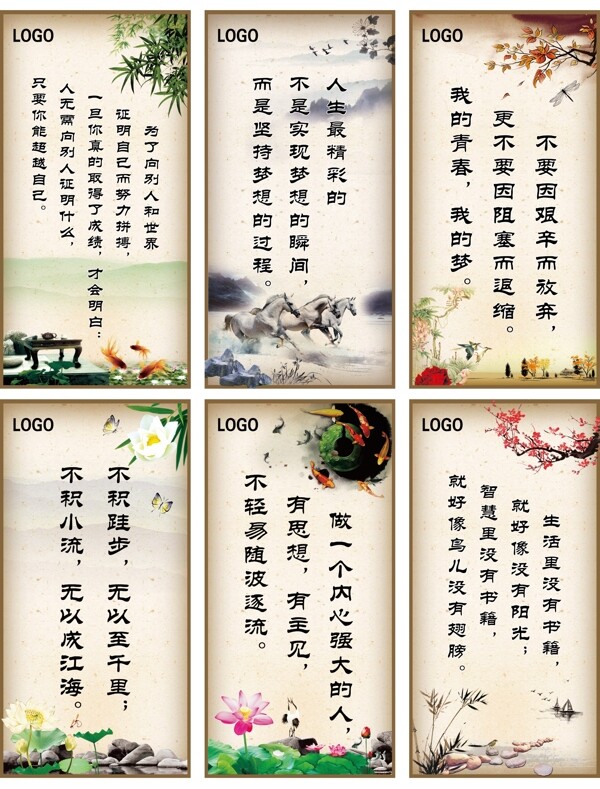 LOGO
为了向别人和世界
证明自己而努力拼搏，
一旦你真的取得了成绩，才会明白：
人无需向别人证明什么，
只要你能超越自己。
LOGO
人生最精彩的
不是实现梦想的瞬间，
而是坚持梦想的过程。
LOGO
不要因艰辛而放弃，
更不要因阻塞而退缩。
我的青春，我的梦。
LOGO
不积跬步，无以至千里；
不积小流，无以成江海。
LOGO
做一个内心强大的人，
有思想，有主见，
不轻易随波逐流。
LOGO
生活里没有书籍，
就好像没有阳光；
智慧里没有书籍，
就好像鸟儿没有翅膀。